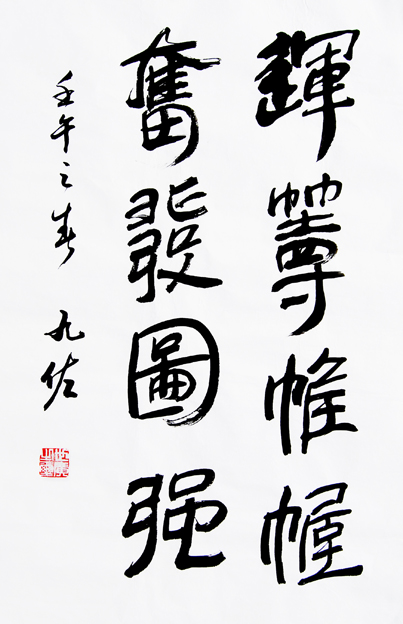 運籌帷幄
奮發圖强
壬午之春 九佐